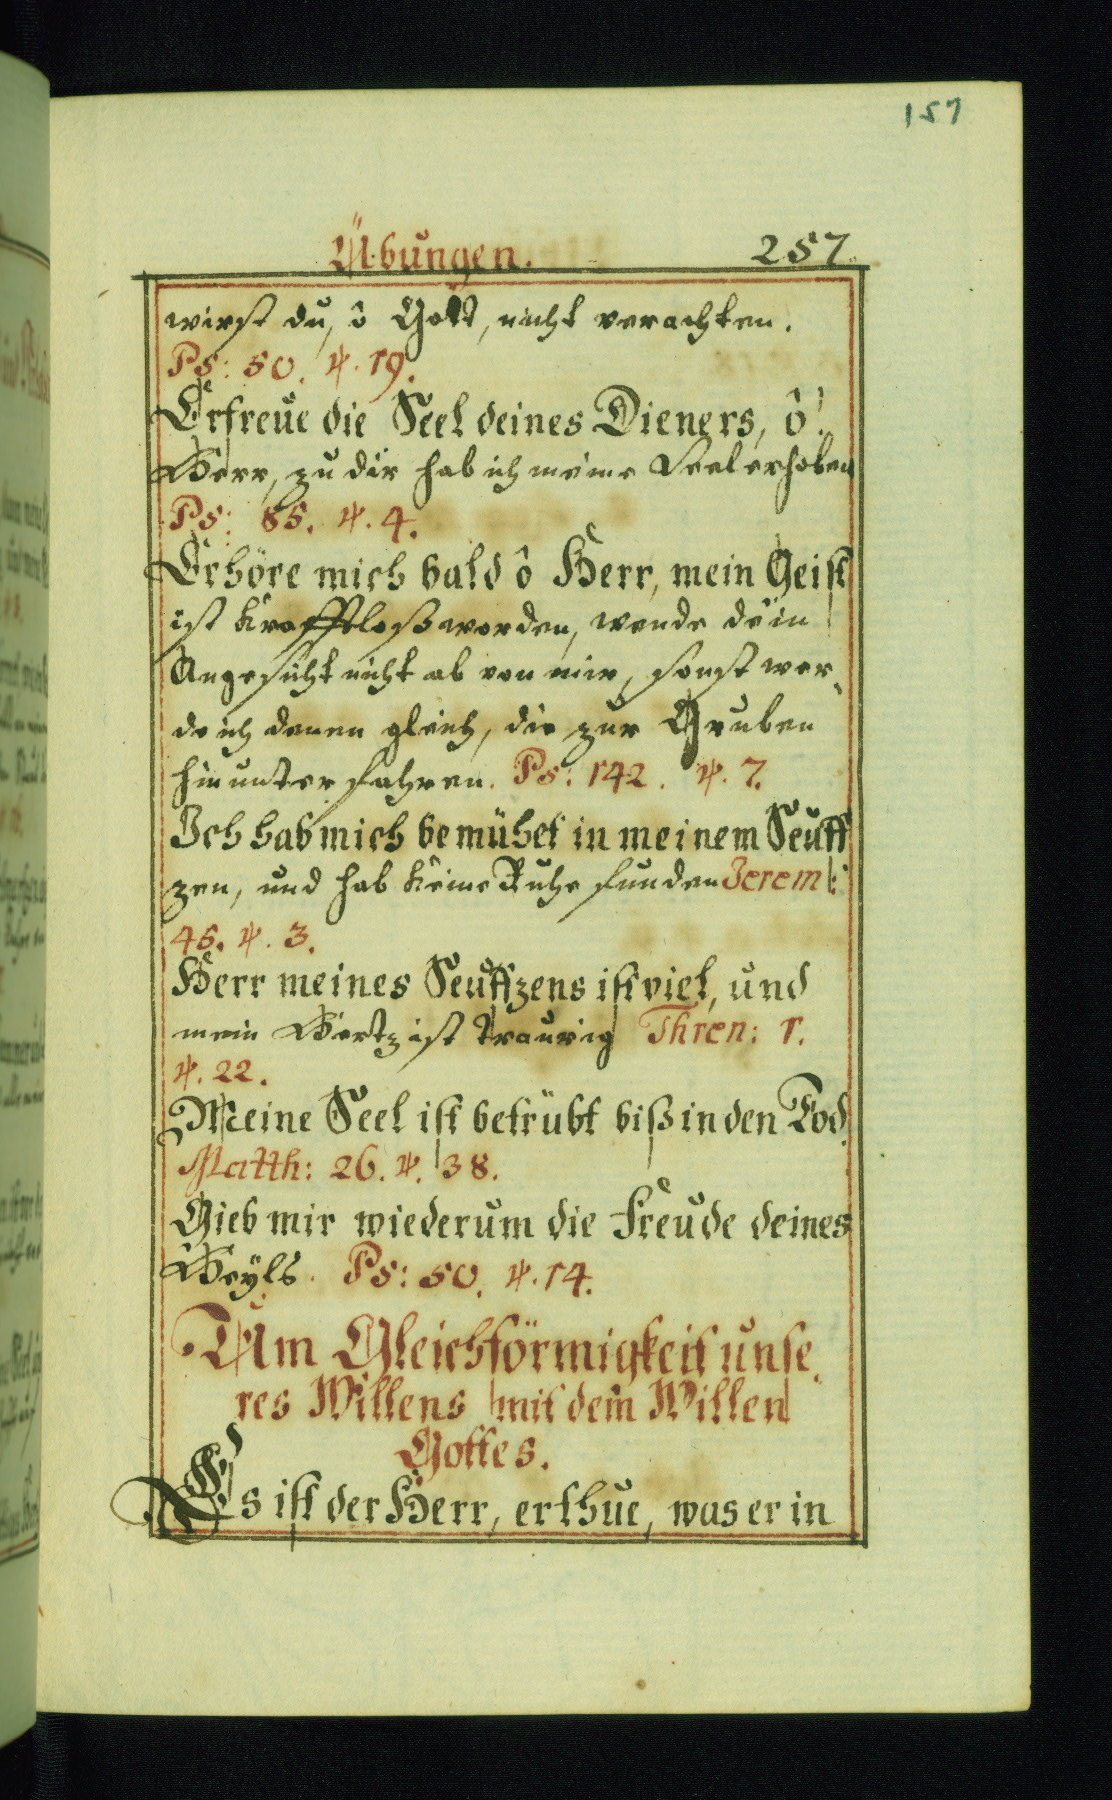 157
Übungen. 257.
wirst du, ô Gott, nicht verachten.
Ps: 50. ℣. 19.
Erfreue die Seel deines Dieners, ô!
Herr, zu dir hab ich meine Seel erhoben
Ps: 85. ℣. 4.
Erhöre mich bald ô Herr, mein Geist
ist Krafftloß worden, wende dein
Angesicht nicht ab von mir, sonst wer„
de ich denen gleich, die zur Gruben
hinunter fahren. Ps: 142. ℣. 7.
Ich hab mich bemühet in meinem Seuff
zen, und hab Keine Ruhe funden Jerem:
45. ℣. 3.
Herr meines Seuffzens ist viel, und
mein Hertz ist traurig Thren: 1.
℣. 22.
Meine Seel ist betrübt biß in den Tod.
Matth: 26. ℣. 38.
Gieb mir wiederum die Freude deines
Heÿls. Ps: 50. ℣. 14.
Um Gleichförmigkeit unse„
res Willens mit dem Willen
Gottes.
Es ist der Herr, er thue, was er in